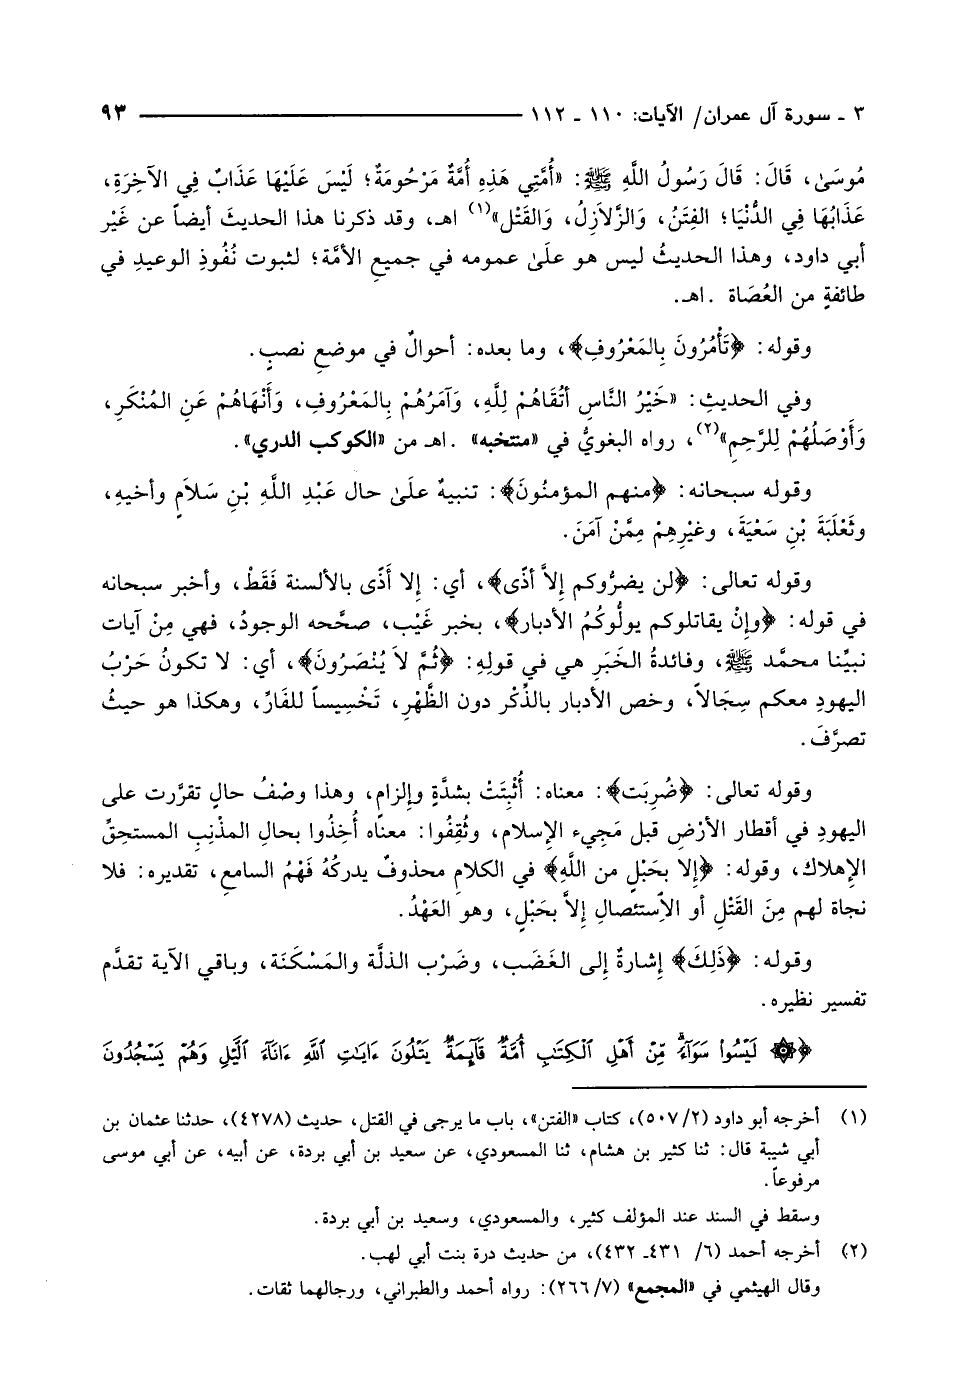 ٣ - سورة آل عمران/ الآيات: ١١٠ - ١١٢ ٩٣
مُوسَىٰ، قَالَ: قَالَ رَسُولُ اللَّهِ ﷺ: «أُمَّتِي هَذِهِ أُمَّةٌ مَرْحُومَةٌ؛ لَيْسَ عَلَيْهَا عَذَابٌ فِي الآخِرَةِ،
عَذَابُهَا فِي الدُّنْيَا؛ الفِتَنُ، وَالزَّلاَزِلُ، وَالقَتْل»(١) اهـ، وقد ذكرنا هذا الحديثَ أيضاً عن غَيْر
أبي داود، وهذا الحديثُ ليس هو علَىٰ عمومه في جميع الأمَّة؛ لثبوت نُفُوذِ الوعيدِ في
طائفةٍ من العُصَاة .اهـ.
وقوله: ﴿تَأْمُرُونَ بِالمَعْرُوفِ﴾، وما بعده: أحوالٌ في موضع نصبٍ.
وفي الحديثِ: «خَيْرُ النَّاسِ أتْقَاهُمْ لِلَّهِ، وَآمَرُهُمْ بِالمَعْرُوفِ، وَأَنْهَاهُمْ عَنِ المُنْكَرِ،
وَأَوْصَلُهُمْ لِلرَّحِمِ»(٢)، رواه البغويُّ في «منتخبه» .اهـ من «الكوكب الدري».
وقوله سبحانه: ﴿منهم المؤمنُونَ﴾: تنبيهٌ علَىٰ حال عَبْدِ اللَّهِ بْنِ سَلاَمٍ وأخيهِ،
وثَعْلَبَةَ بْنِ سَعْيَةَ، وغيْرِهِمْ مِمَّنْ آمَنَ.
وقوله تعالى: ﴿لن يضرُّوكم إلاَّ أذًى﴾، أي: إلا أَذًى بالألسنة فَقَطْ، وأخبر سبحانه
في قوله: ﴿وإنْ يقاتلوكم يولُّوكُمُ الأدبار﴾، بخبر غَيْب، صحَّحه الوجودُ، فهي مِنْ آيات
نبيِّنا محمَّد ﷺ، وفائدةُ الخَبَرِ هي في قولِهِ: ﴿ثُمَّ لاَ يُنْصَرُونَ﴾، أي: لا تكونُ حَرْبُ
اليهودِ معكم سِجَالاً، وخص الأدبار بالذِّكْر دون الظَّهْرِ، تَخْسِيساً للفَارِّ، وهكذا هو حيثُ
تصرَّفَ.
وقوله تعالى: ﴿ضُرِبَت﴾: معناه: أُثْبِتَتْ بشدَّةٍ وإلزامٍ، وهذا وصْفُ حالٍ تقرَّرت على
اليهودِ في أقطار الأرْضِ قبل مَجِيء الإسلام، وثُقِفُوا: معناه أُخِذُوا بحالِ المذْنِبِ المستحِقِّ
الإهلاك، وقوله: ﴿إلا بحَبْلٍ من اللَّهِ﴾ في الكلامِ محذوفٌ يدركُهُ فَهْمُ السامعِ، تقديره: فلا
نجاة لهم مِنَ القَتْلِ أو الاِستئصالِ إلاَّ بحَبْلٍ، وهو العَهْدُ.
وقوله: ﴿ذَلِكَ﴾ إشارةٌ إلى الغَضَب، وضَرْب الذلَّة والمَسْكَنَة، وباقي الآية تقدَّم
تفسير نظيره.
﴿۞ لَيْسُواْ سَوَآءً مِّنْ أَهْلِ ٱلْكِتَٰبِ أُمَّةٌ قَآئِمَةٌ يَتْلُونَ ءَايَٰتِ ٱللَّهِ ءَانَآءَ ٱلَّيْلِ وَهُمْ يَسْجُدُونَ
(١) أخرجه أبو داود (٥٠٧/٢)، كتاب «الفتن»، باب ما يرجى في القتل، حديث (٤٢٧٨)، حدثنا عثمان بن
أبي شيبة قال: ثنا كثير بن هشام، ثنا المسعودي، عن سعيد بن أبي بردة، عن أبيه، عن أبي موسى
مرفوعاً.
وسقط في السند عند المؤلف كثير، والمسعودي، وسعيد بن أبي بردة.
(٢) أخرجه أحمد (٦/ ٤٣١ـ ٤٣٢)، من حديث درة بنت أبي لهب.
وقال الهيثمي في «المجمع» (٢٦٦/٧): رواه أحمد والطبراني، ورجالهما ثقات.